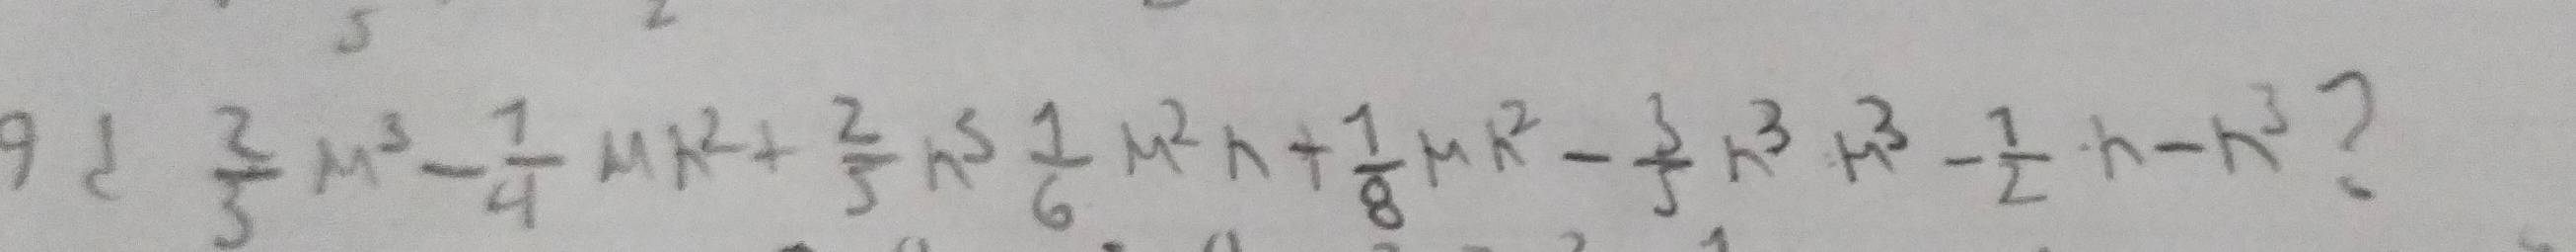 9 ¿ 2/3 m³ - 1/4 mn² + 2/5 n³ 1/6 m²n + 1/8 mn² - 3/5 n³ m³ - 1/2 n - n³ ?